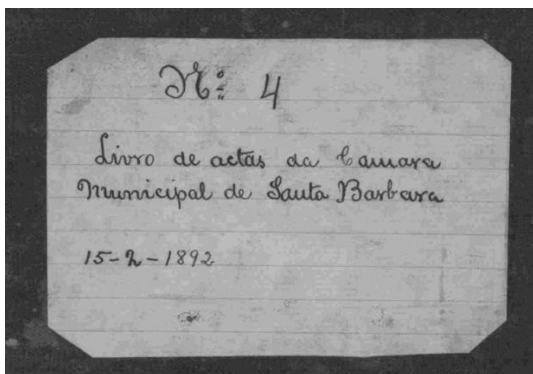 Nº 4
Livro de actas da Camara
Municipal de Santa Barbara
15-2-1892